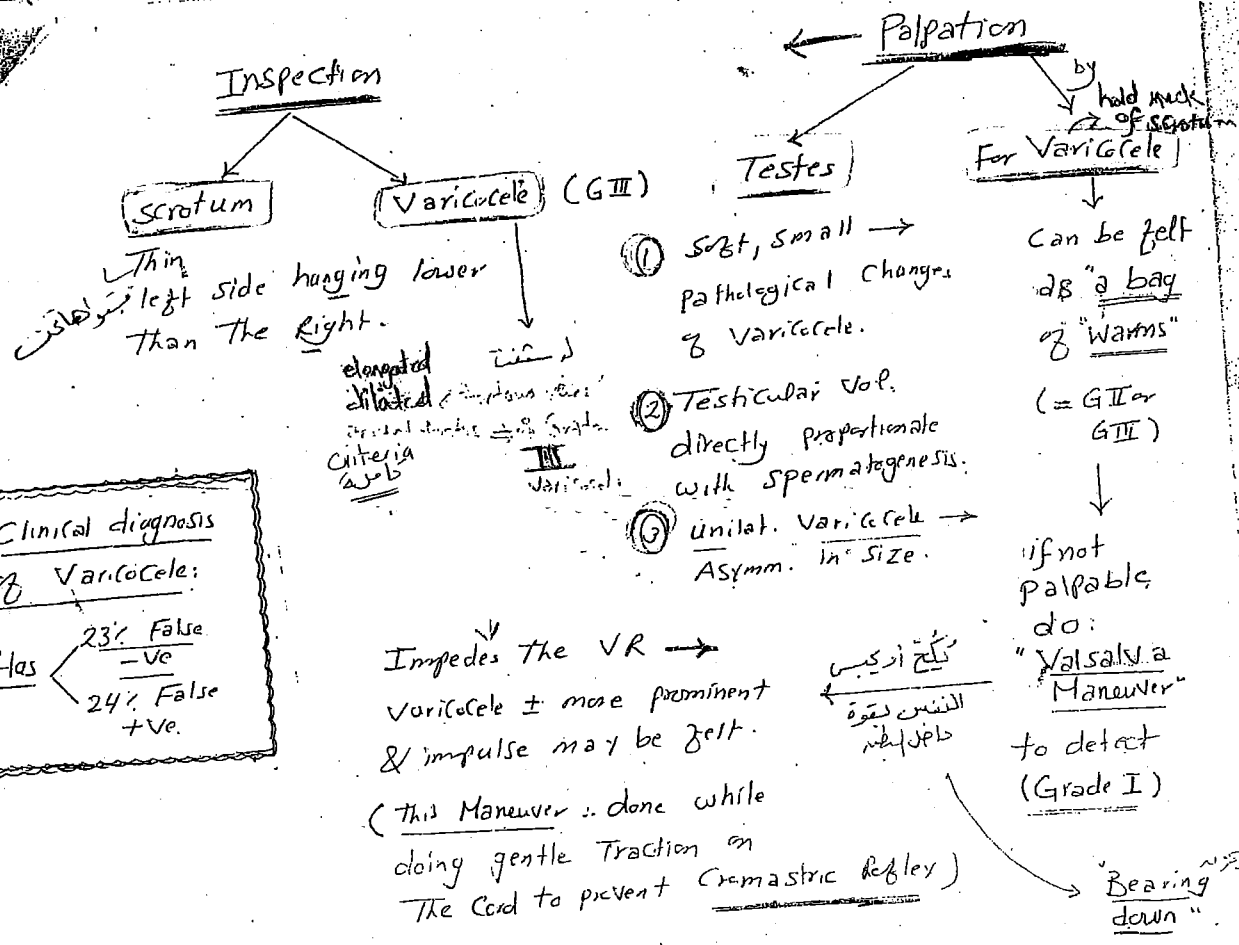 Inspection
scrotum
Thin
left side hanging lower
Than The Right.
Varicocele (GIII)
elongated
dilated
criteria
III
Varicocele
Clinical diagnosis
of Varicocele:
Has
23% False
-ve
24% False
+ve.
Palpation
Testes
① Soft, small →
pathological Changes
of Varicocele.
② Testicular Vol.
directly proportionate
with spermatogenesis.
③ unilat. Varicocele →
Asymm. in size.
by
hold neck
of scrotum
For Varicocele
Can be felt
as "a bag
of "Warms"
(= GII or
GIII)
if not
palpable,
do:
"Valsalva
Maneuver"
to detect
(Grade I)
النفس بقوة
"Bearing
down".
Impedes The VR →
varicocele ± more prominent
& impulse may be felt.
(This Maneuver is done while
doing gentle Traction on
The Cord to prevent Cremastric Reflex)